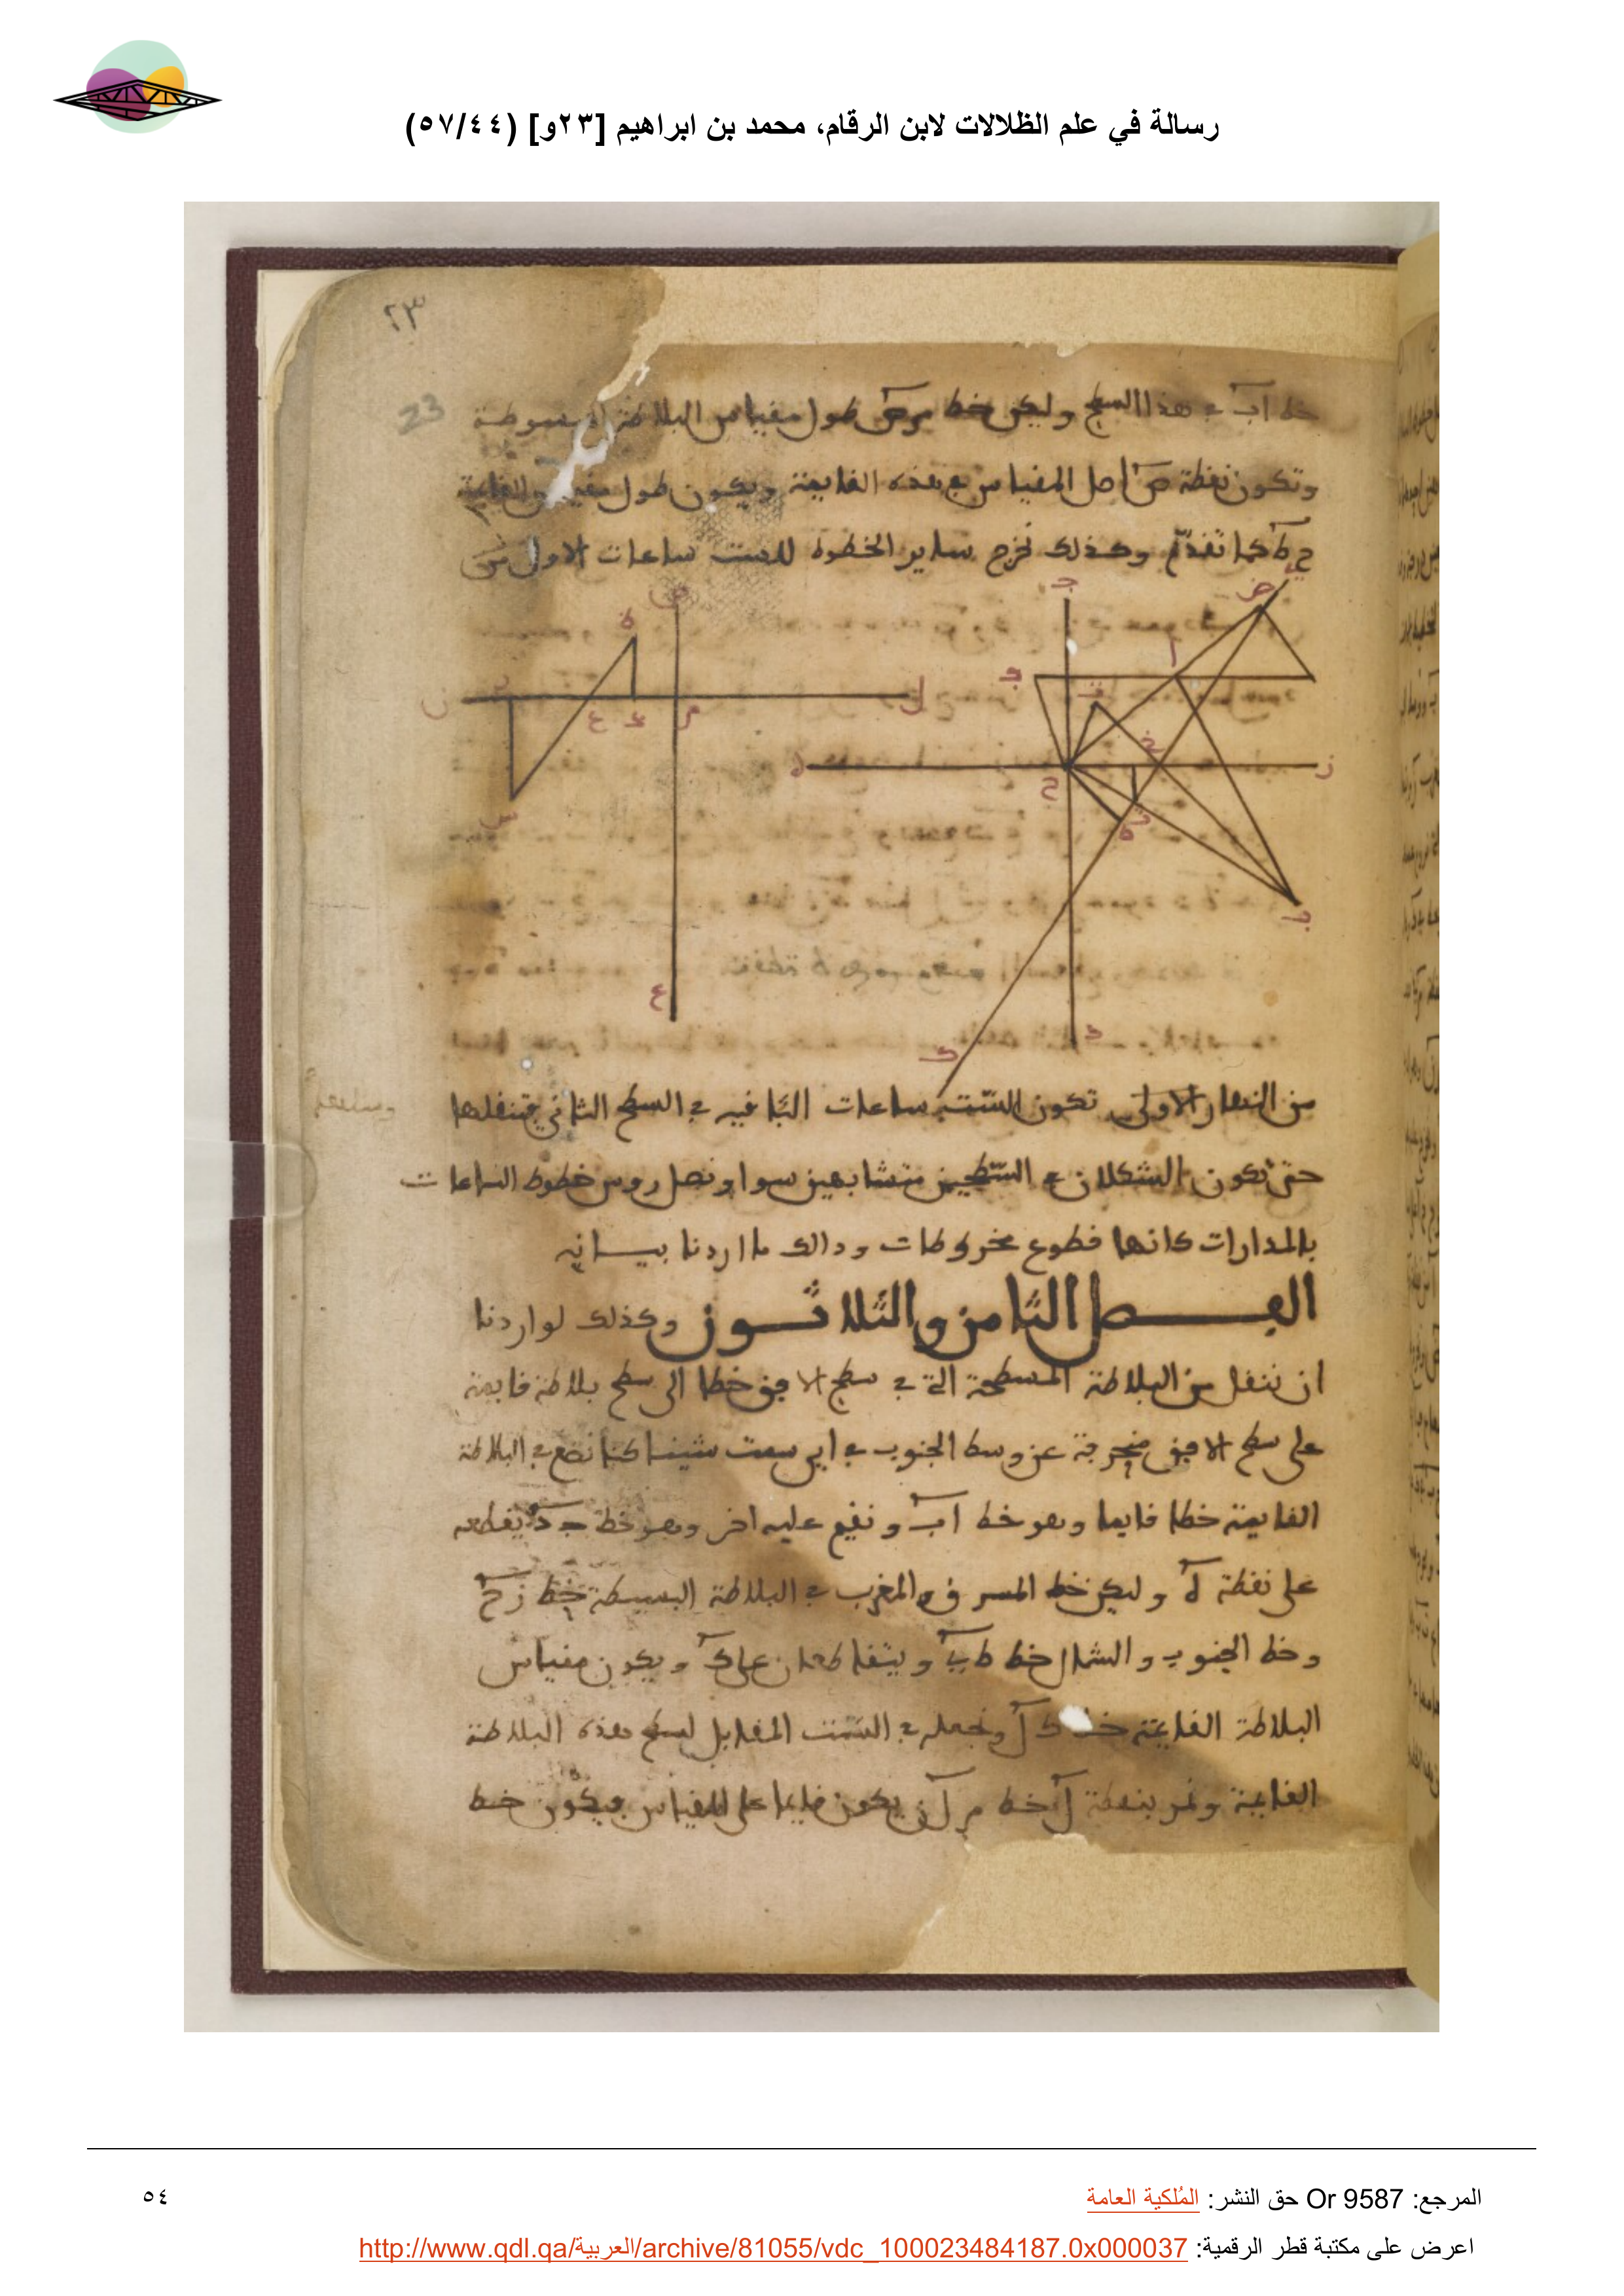 رسالة في علم الظلالات لابن الرقام، محمد بن ابراهيم [٢٣و] (٥٧/٤٤)
٢٣
23
خط اب في هذا السطح وليكن خط م ص طول مقياس البلاطة المبسوطة
وتكون نقطة ص اصل المقياس في هذه القايمة ويكون طول مقياس القايمة
ح ط كما تقدم وكذلك نخرج ساير الخطوط للست ساعات الاول من
من النهار الاولى تكون الست ساعات الباقيه في السطح الثاني فتنقلها
حتى تكون الشكلان في السطحين متشابهين سوا ونصل روس خطوط الساعات
بالمدارات كانها قطوع مخروطات وذالك ما اردنا بيانه
الفصل الثامن والثلاثون وكذلك لو اردنا
ان ننقل من البلاطة المسطحة التي في سطح الافق خطا الى سطح بلاطة قايمة
على سطح الافق منحرفة عن وسط الجنوب في اي سمت شينا كنا نضع في البلاطة
القايمة خطا قايما وهو خط اب ونقيم عليه اخر وهو خط جد يقطعه
على نقطة ه وليكن خط المشرق والمغرب في البلاطة البسيطة خط زح
وخط الجنوب والشمال خط طي ويتقاطعان على ك ويكون مقياس
البلاطة القايمة خط ك ل ونجعله في السمت المقابل لسطح هذه البلاطة
القايمة ونمر بنقطة ل خط م ل ن يكون قايما على المقياس فيكون خط
المرجع: Or 9587 حق النشر: المُلكية العامة
٥٤
اعرض على مكتبة قطر الرقمية: http://www.qdl.qa/العربية/archive/81055/vdc_100023484187.0x000037